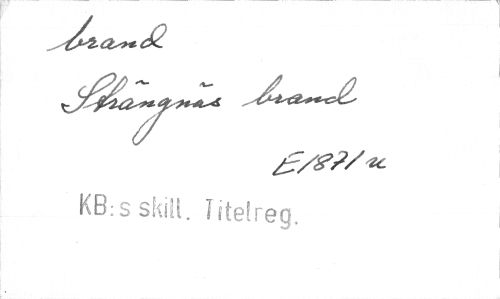 brand
Strängnäs brand
E1871 u
KB:s skill. Titelreg.